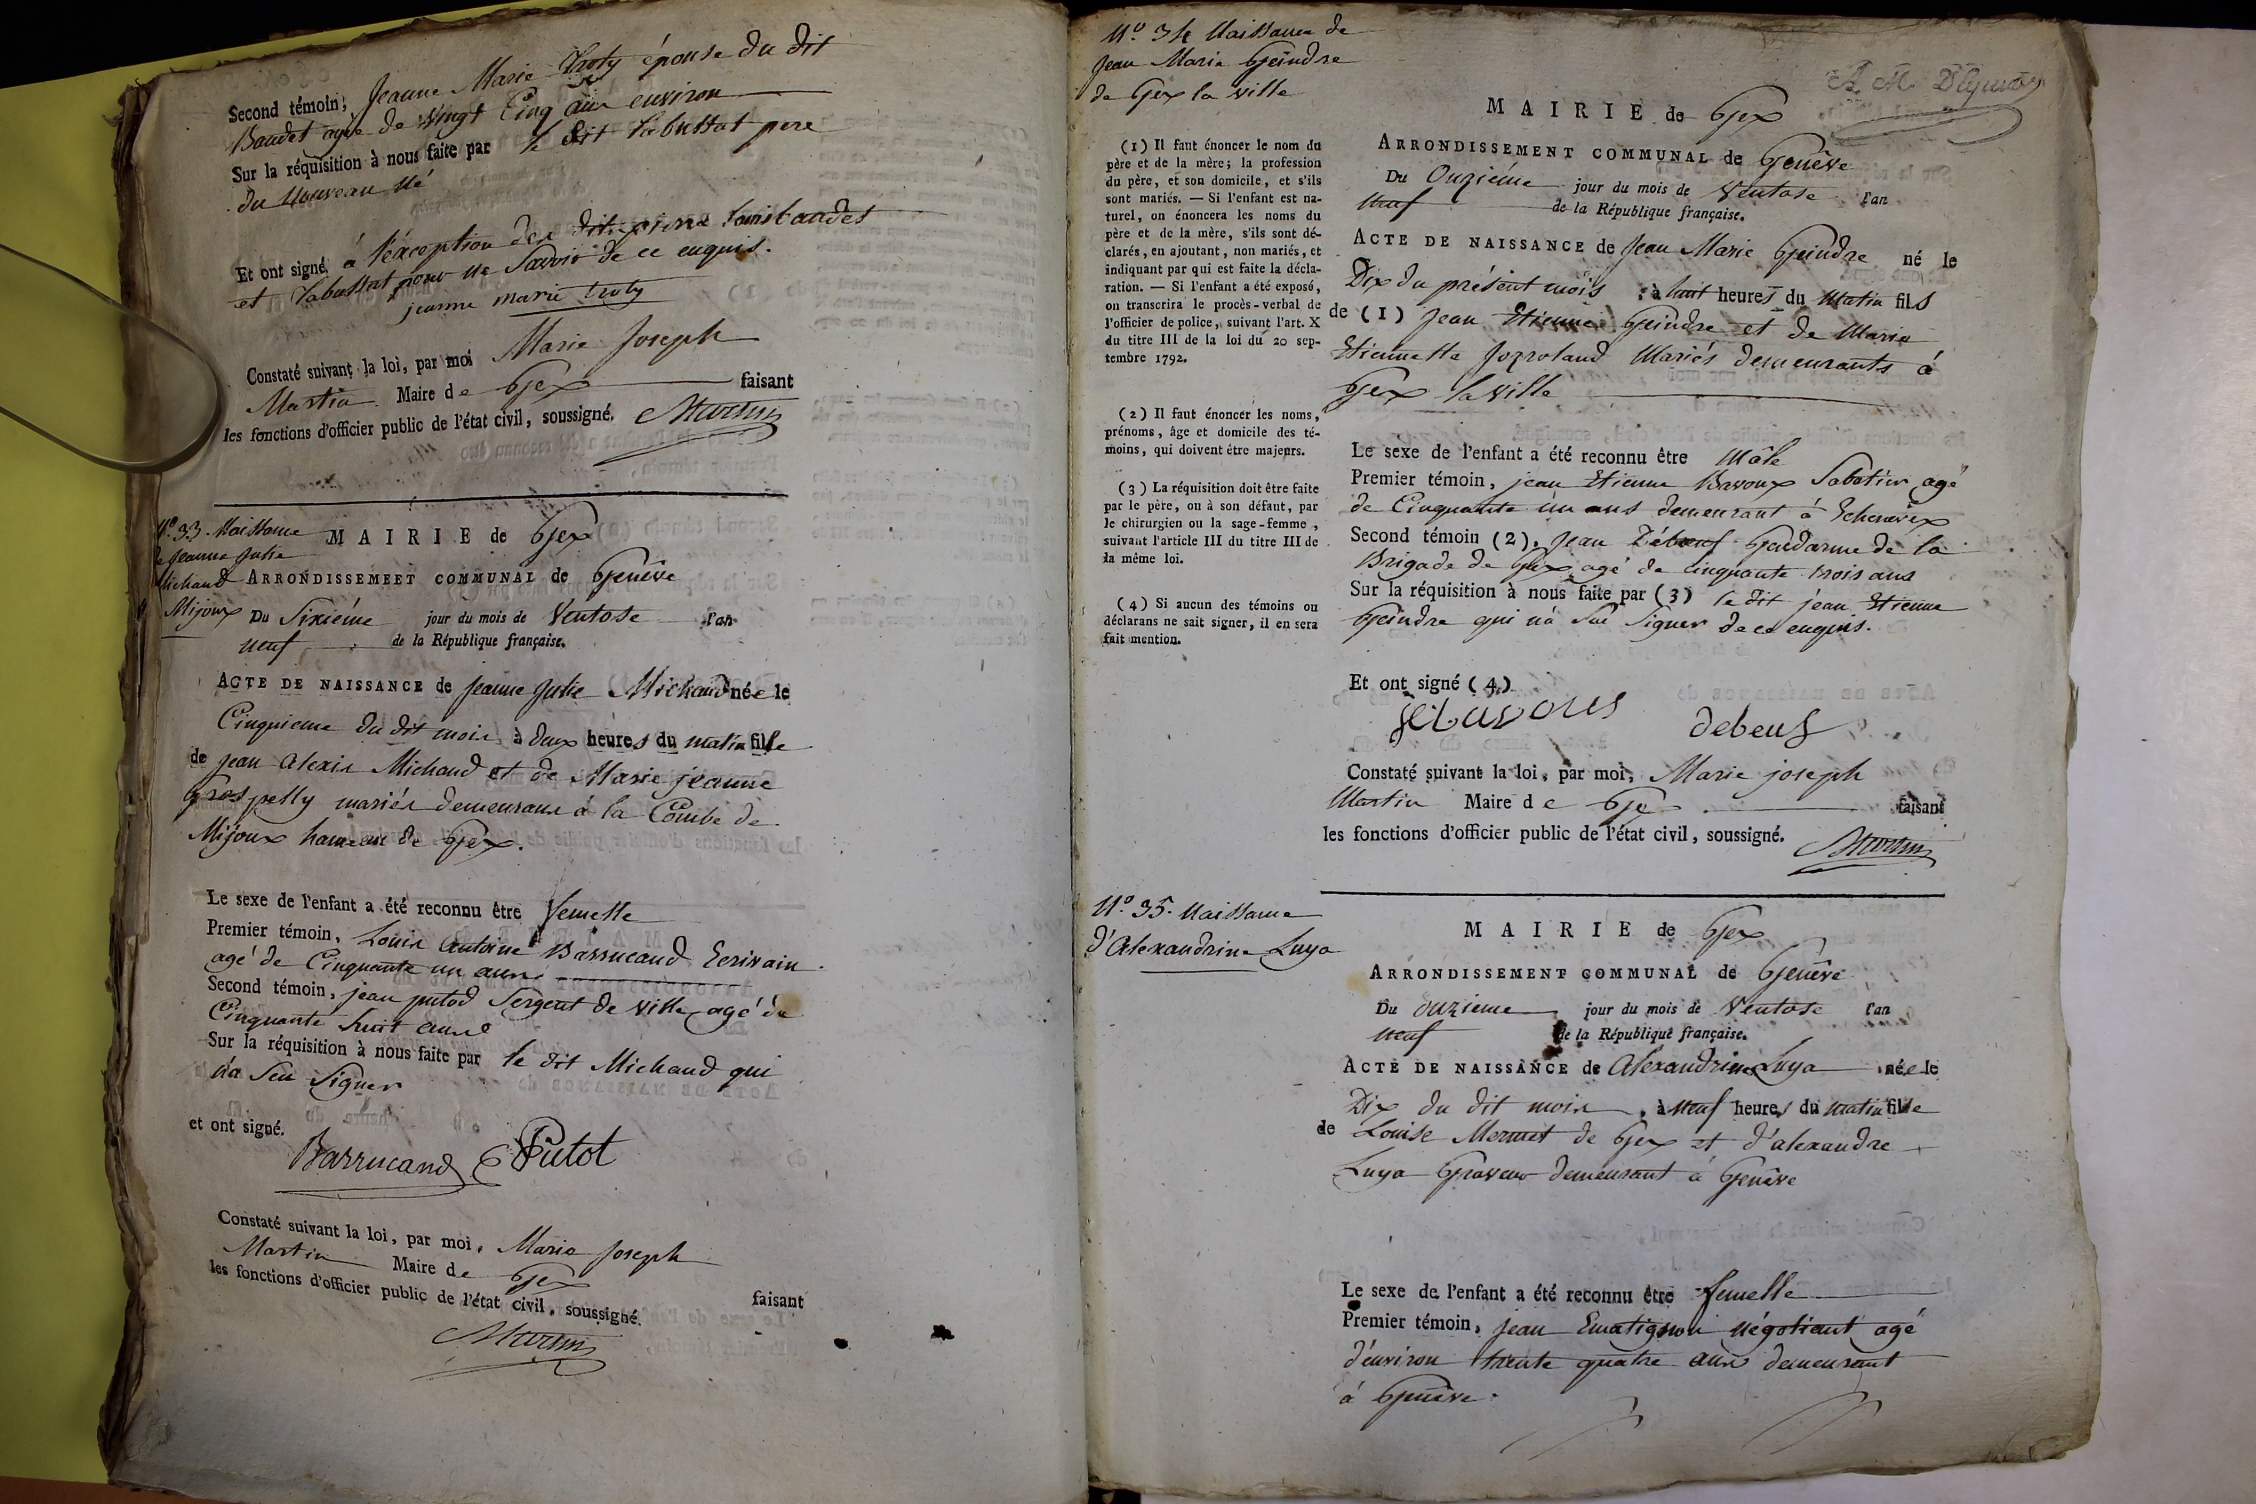 Second témoin, Jeanne Marie Troty épouse du dit
Baudet agée de vingt Cinq ans environ
Sur la réquisition à nous faite par le dit Tabustat pere
du Nouveau Né
Et ont signé à l'éxception des dits Louis baudet
et Tabustat pour ne Savoir de ce enquis.
jeanne marie troty
Constaté suivant la loi, par moi Marie Joseph
Martin Maire de Gex faisant
les fonctions d'officier public de l'état civil, soussigné. Martin
N.º 33. Naissance
de Jeanne Julie
Michaud
Mijoux
MAIRIE de Gex
ARRONDISSEMEET COMMUNAL de Genève
Du Sixiéme jour du mois de Ventose l'an
neuf de la République française.
ACTE DE NAISSANCE de Jeanne Julie Michaud née le
Cinquieme du dit mois à deux heures du matin fille
de Jean Alexis Michaud et de Marie jeanne
grospelly mariés demeurans à la Combe de
Mijoux hameau de Gex.
Le sexe de l'enfant a été reconnu être femelle
Premier témoin, Louis Antoine Barrucand Ecrivain
agé de Cinquante un ans
Second témoin, jean putod Sergent de Ville agé de
Cinquante huit ans
Sur la réquisition à nous faite par le dit Michaud qui
n'a Seu Signer
et ont signé.
Barrucand Putot
Constaté suivant la loi, par moi, Marie Joseph
Martin Maire de Gex
faisant
les fonctions d'officier public de l'état civil, soussigné.
Martin
N.º 34 Naissance de
Jean Marie Geindre
de Gex la ville
(1) Il faut énoncer le nom du
père et de la mère; la profession
du père, et son domicile, et s'ils
sont mariés. — Si l'enfant est na-
turel, on énoncera les noms du
père et de la mère, s'ils sont dé-
clarés, en ajoutant, non mariés, et
indiquant par qui est faite la décla-
ration. — Si l'enfant a été exposé,
on transcrira le procès-verbal de
l'officier de police, suivant l'art. X
du titre III de la loi du 20 sep-
tembre 1792.
(2) Il faut énoncer les noms,
prénoms, âge et domicile des té-
moins, qui doivent être majeurs.
(3) La réquisition doit être faite
par le père, ou à son défaut, par
le chirurgien ou la sage-femme,
suivant l'article III du titre III de
la même loi.
(4) Si aucun des témoins ou
déclarans ne sait signer, il en sera
fait mention.
MAIRIE de Gex
ARRONDISSEMENT COMMUNAL de Genève
Du Onzieme jour du mois de Ventose l'an
neuf de la République française.
ACTE DE NAISSANCE de Jean Marie Geindre né le
Dix du présent mois à huit heures du Matin fils
de (1) Jean Etienne Geindre et de Marie
Etiennette Mariés demeurants à
Gex la ville
Le sexe de l'enfant a été reconnu être Mâle
Premier témoin, jean Etienne Bavoux Sabotier agé
de Cinquante un ans demeurant à Echenevex
Second témoin (2), Jean Débeuf Gendarme de la
Brigade de Gex agé de cinquante trois ans
Sur la réquisition à nous faite par (3) le dit jean Etienne
Geindre qui n'a Su Signer de ce enquis.
Et ont signé (4)
debeuf
Constaté suivant la loi, par moi, Marie joseph
Martin Maire de Gex faisant
les fonctions d'officier public de l'état civil, soussigné. Martin
N.º 35. Naissance
d'Alexandrine Luya
MAIRIE de Gex
ARRONDISSEMENT COMMUNAL de Genève
Du onzieme jour du mois de Ventose l'an
neuf de la République française.
ACTE DE NAISSANCE de Alexandrine Luya née le
Dix du dit mois, à neuf heures du matin fille
de Louise Mermet de Gex et d'alexandre
Luya Graveur demeurant à Genève
Le sexe de l'enfant a été reconnu être femelle
Premier témoin, Jean Ematignon Négotiant agé
d'environ trente quatre ans demeurant
à Genève.